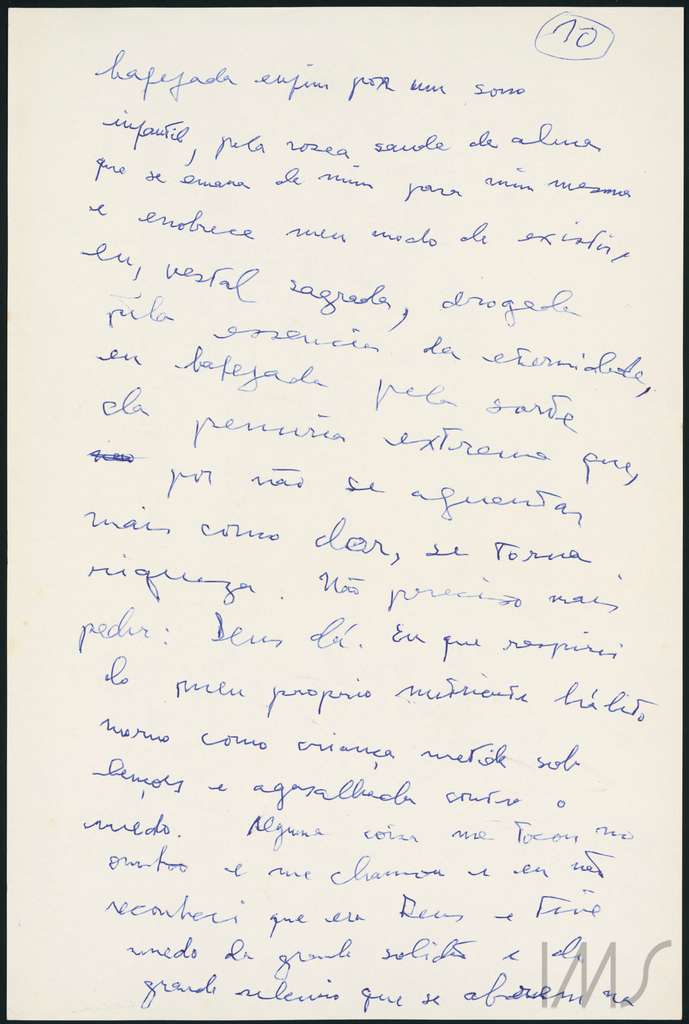 10
bafejada enfim por um sono
infantil, pela rosea saude de alma
que se emana de mim para mim mesma
e enobrece meu modo de existir,
eu, vestal sagrada, drogada
pela essencia da eternidade,
eu bafejada pela sorte
da penuria extrema que,
por não se aguentar
mais como dor, se torna
riqueza. Não preciso mais
pedir: Deus dá. Eu que respirei
do meu proprio nutriente hálito
morno como criança metida sob
lençois e agasalhada contra o
medo. Alguma coisa me tocou no
ombro e me chamou e eu não
reconheci que era Deus e tive
medo da grande solidão e do
grande silencio que se abrem na
IMS